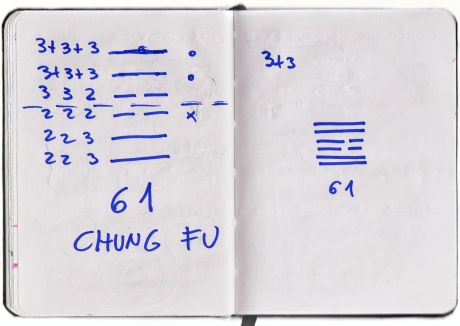 3+3+3
3+3+3
3 3 2
2 2 2 x
2 2 3
2 2 3
61
CHUNG FU
3+3
61